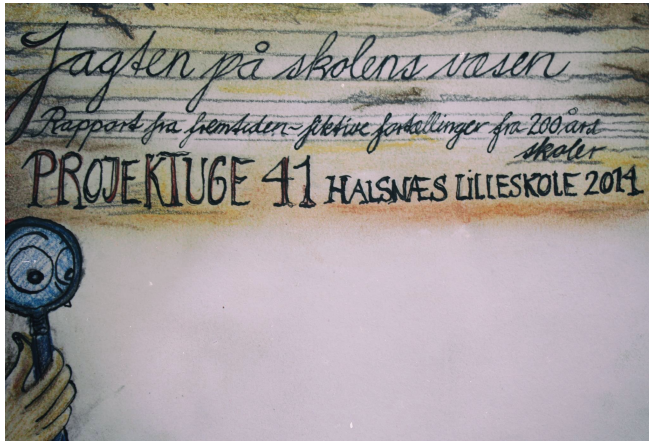 Jagten på skolens væsen
Rapport fra fremtiden - fiktive fortællinger fra 200,års
skoler
PROJEKTUGE 41 HALSNÆS LILLESKOLE 2014